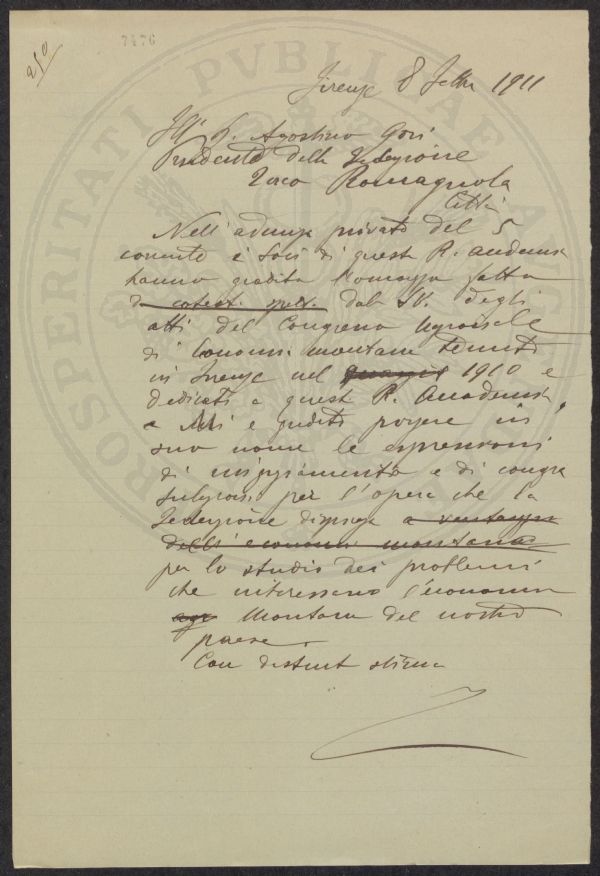 7476
250
Firenze 8 Febbr 1911
Ill. S. Agostino Gori
Presidente della Federazione
Tosco Romagnola
Città
Nell'adunza privata del 5
corrente i Soci di questa R. Accademia
hanno gradita l'omaggio fatta
dal SV. degli
atti del Congresso
di Economia montana tenuti
in Firenze nel 1910 e
dedicati a questa R. Accademia
e Mi è gradito porgere in
suo nome le espressioni
di ringraziamento e di congra
tulazioni per l'opera che la
Federazione dispiega a vantaggio
dell'economia montana
per lo studio dei problemi
che interessano l'economia
agr montana del nostro
paese.
Con distint stima
PROSPERITATI PVBLICAE AVGENDAE